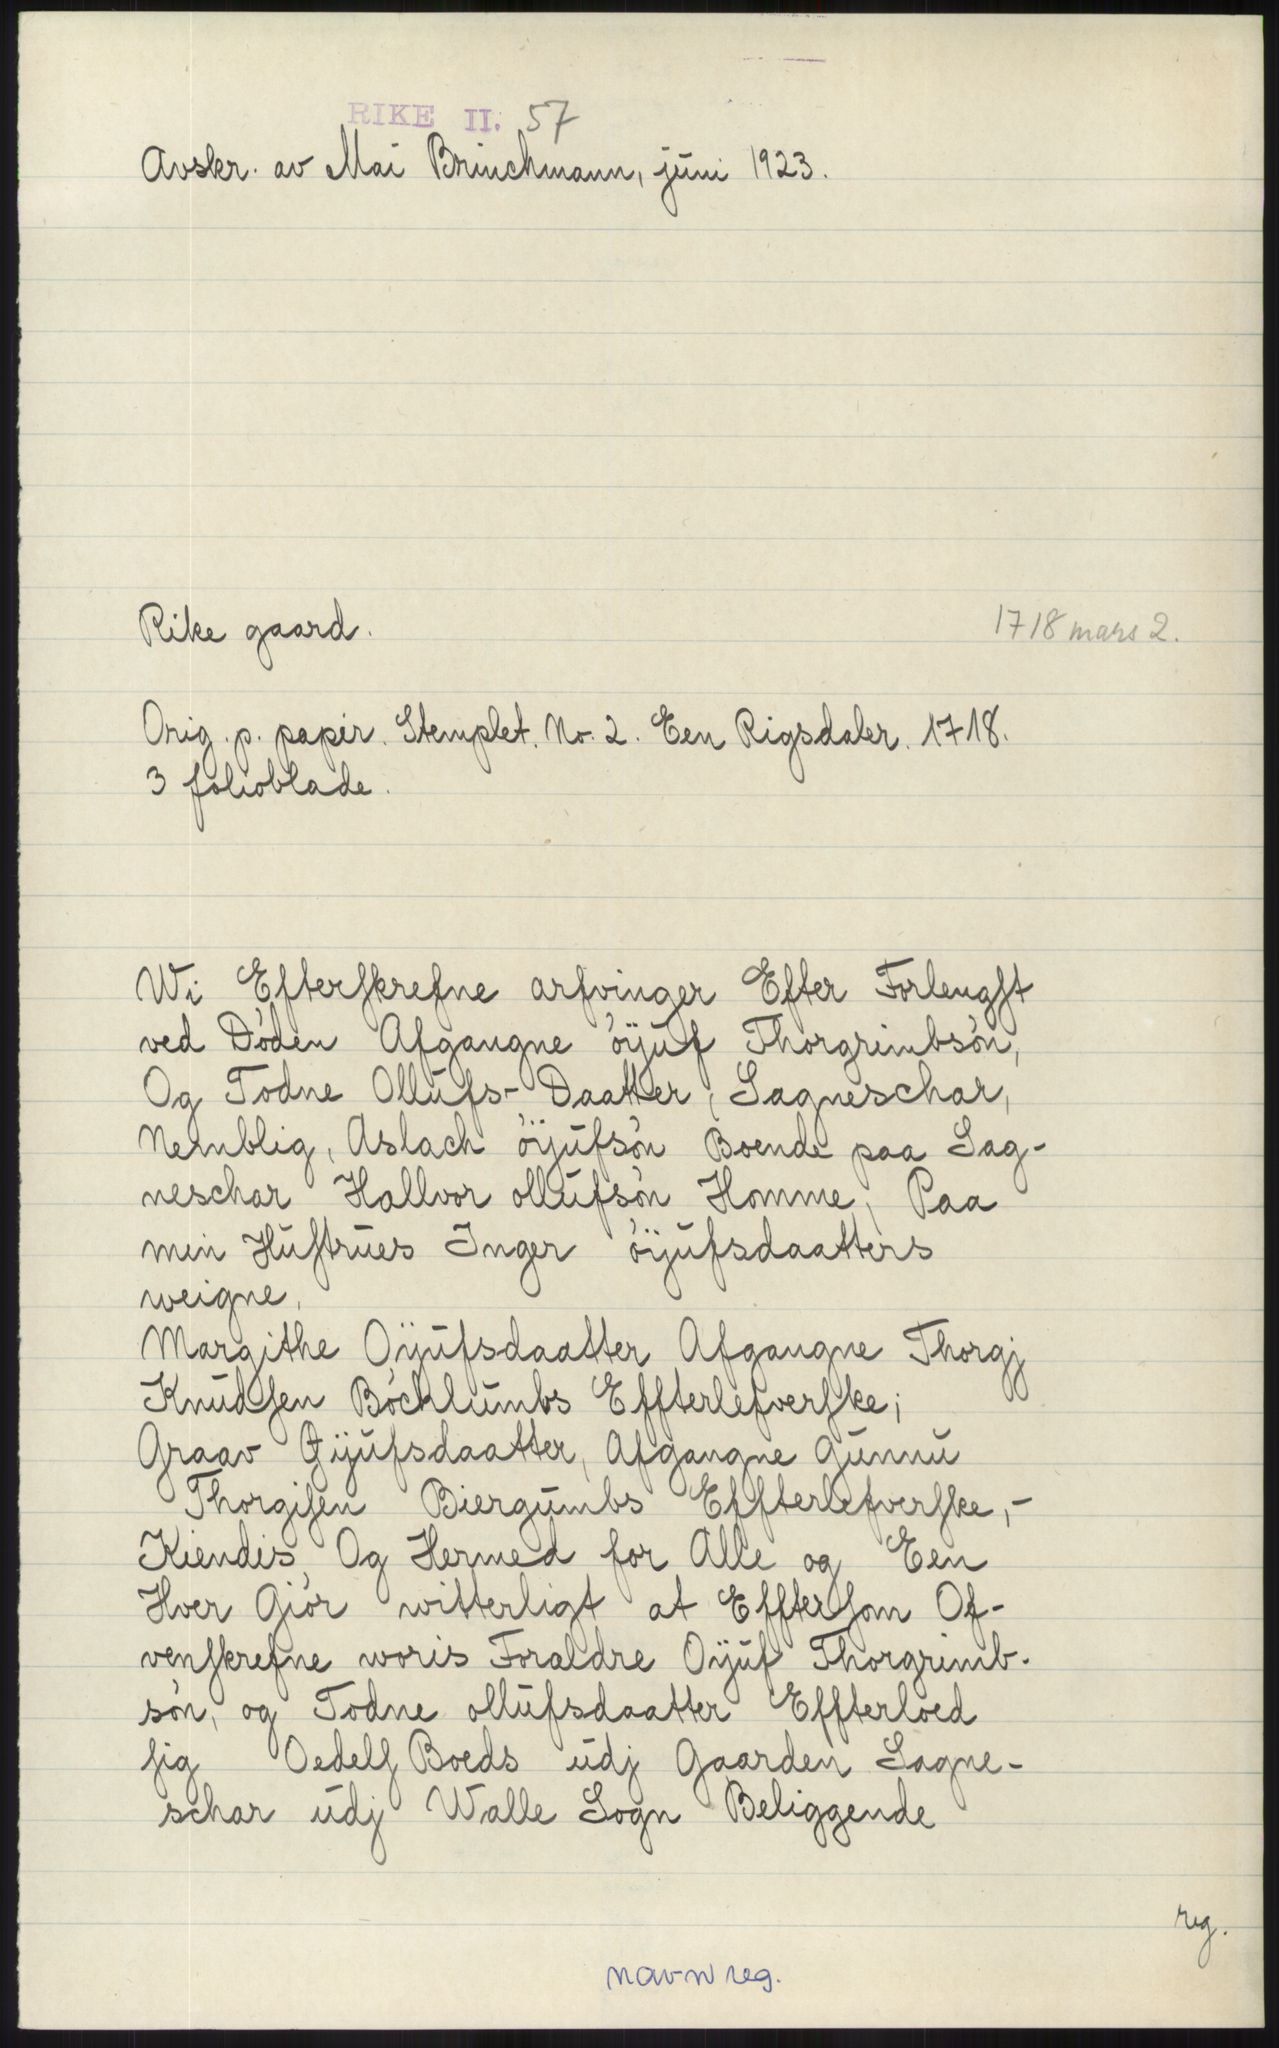 RIKE II. 57
Avskr. av Mai Brinchmann, juni 1923.
Rike gaard.
1718 mars 2.
Orig. p. papir. Stemplet. No. 2. Een Rigsdaler. 1718.
3 folioblade.
Wi Efterskrefne arfvinger Efter Forlengst
ved Döden Afgangne öÿuf Thorgrimbsön,
Og Todne Ollufs-Daatter, Sagneschar,
Nemblig, Aslach öÿufsön Boende paa Sag-
neschar Hallvor ollufsön Homme, Paa
min Hustrues Inger öÿufsdaatters
weigne,
Margithe Oÿufsdaatter Afgangne Thorgj
Knudsen Böcklumbs Effterlefverske;
Graav Oÿufsdaatter, Afgangne Gunnu
Thorgisen Biergumbs Effterlefverske,-
Kiendis, Og Hermed for Alle og Een
Hver Giör witterligt at Efftersom Of-
venskrefne woris Foraldre Oÿuf Thorgrimb-
sön, og Todne ollufsdaatter Effterloed
sig Oedels Boeds udj Gaarden Sagne-
schar udj Walle Sogn Beliggende
reg.
navnreg.